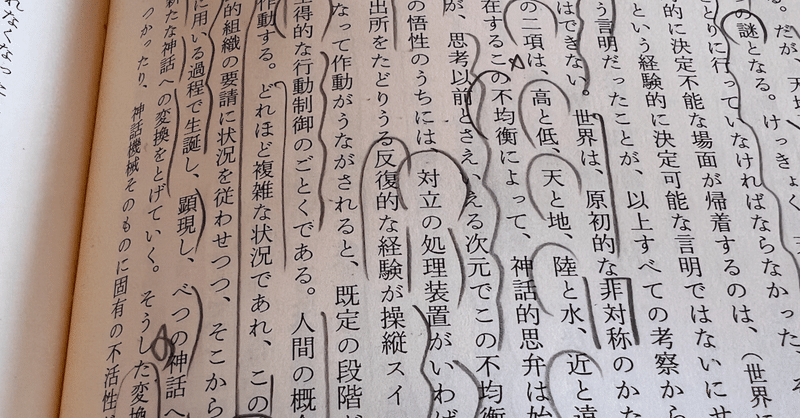 る。だが、天地
の謎となる。けっきょく
とりに行っていなければならなかった
的に決定不能な場面が帰着するのは、（世界
という経験的に決定可能な言明ではないにせ
う言明だったことが、以上すべての考察から
はできない。世界は、原初的な非対称のかた
の二項は、高と低、天と地、陸と水、近と遠
在するこの不均衡によって、神話的思弁は始
が、思考以前とさえいえる次元でこの不均衡
の悟性のうちには、対立の処理装置がいわば
出所をたどりうる反復的な経験が操縦スイ
なって作動がうながされると、既定の段階が
得的な行動制御のごとくである。人間の概
作動する。どれほど複雑な状況であれ、この
的組織の要請に状況を従わせつつ、そこから
に用いる過程で生誕し、顕現し、べつの神話へ
新たな神話への変換をとげていく。そうした変換
つかったり、神話機械そのものに固有の不活性
れなくなった